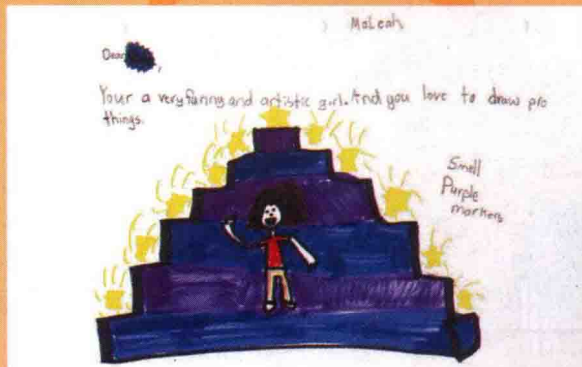 MaLeah
Dear ,
Your a very funny and artistic girl. And you love to draw pro
things.
Smell
Purple
markers